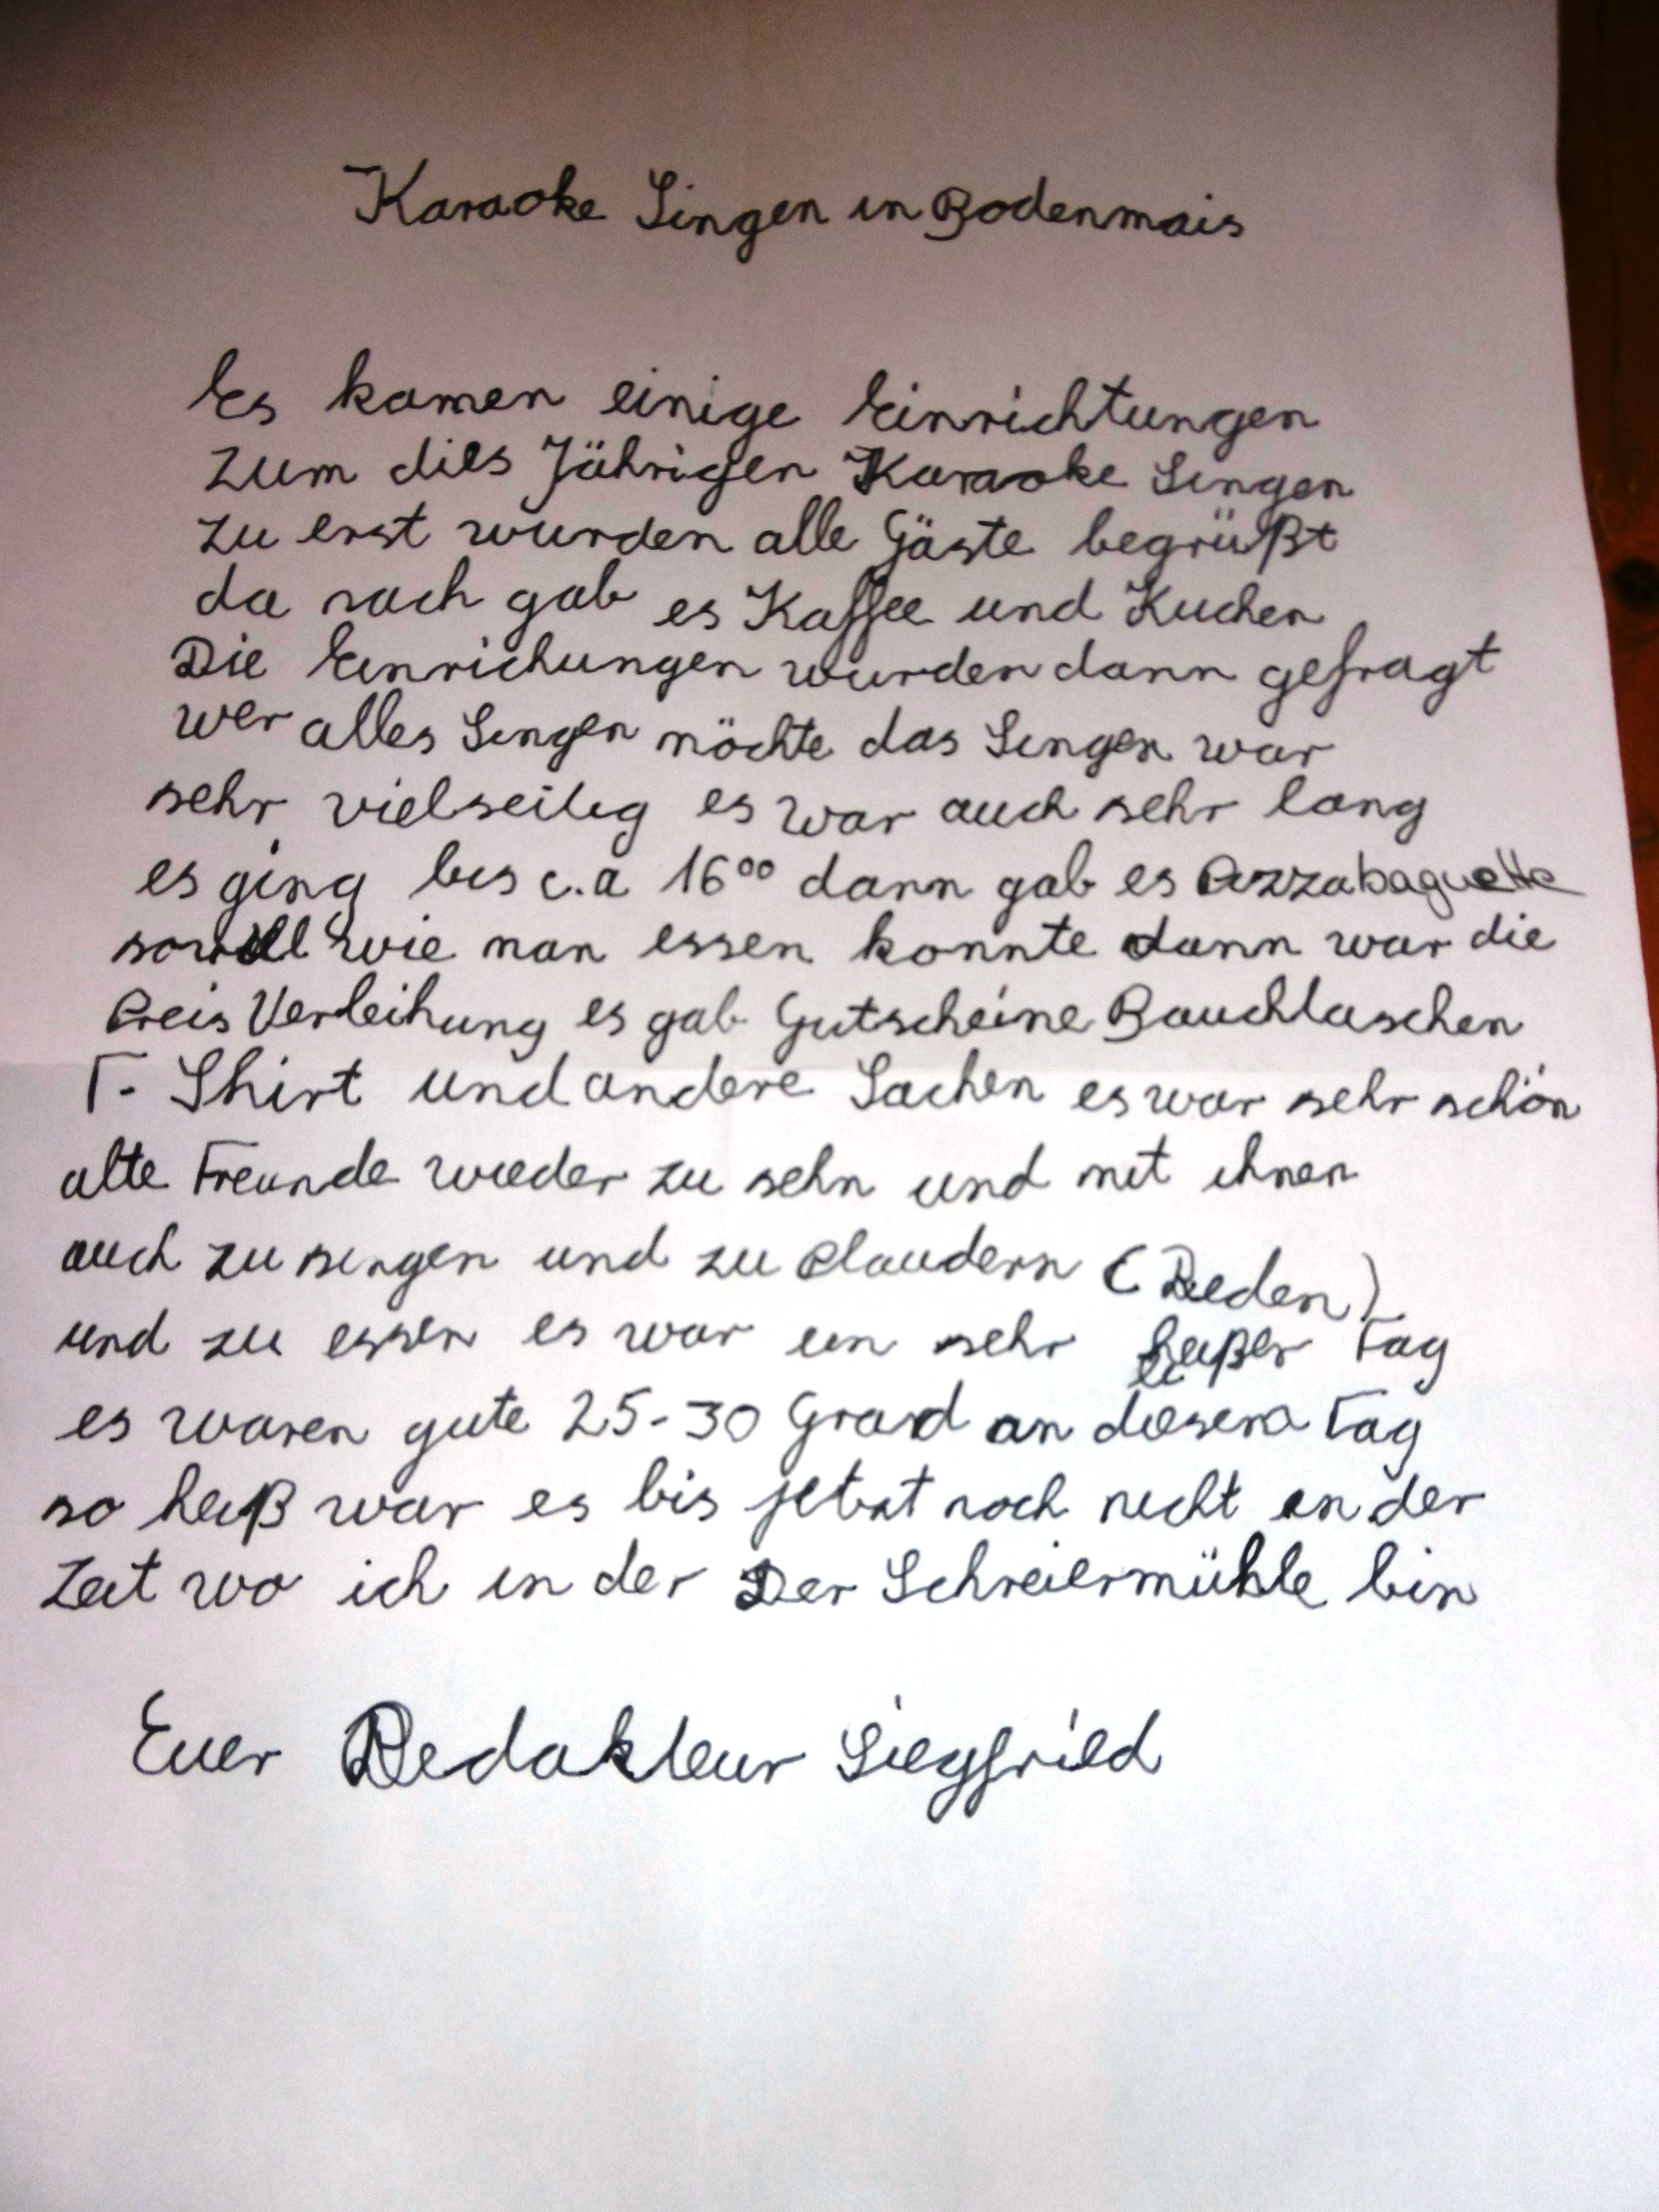 Karaoke Singen in Bodenmais
Es kamen einige Einrichtungen
zum dies Jährigen Karaoke Singen
zu erst wurden alle Gäste begrüßt
da nach gab es Kaffee und Kuchen
Die Einrichungen wurden dann gefragt
wer alles Singen möchte das Singen war
sehr vielseitig es war auch sehr lang
es ging bis c.a 16⁰⁰ dann gab es Pizzabaguette
soviel wie man essen konnte dann war die
Preis Verleihung es gab Gutscheine Bauchtaschen
T-Shirt und andere Sachen es war sehr schön
alte Freunde wieder zu sehn und mit ihnen
auch zu singen und zu Plaudern (Reden)
und zu essen es war ein sehr heißer Tag
es waren gute 25-30 Grad an diesem Tag
so heiß war es bis jetzt noch nicht in der
Zeit wo ich in der Der Schreiermühle bin
Euer Redakteur Siegfried